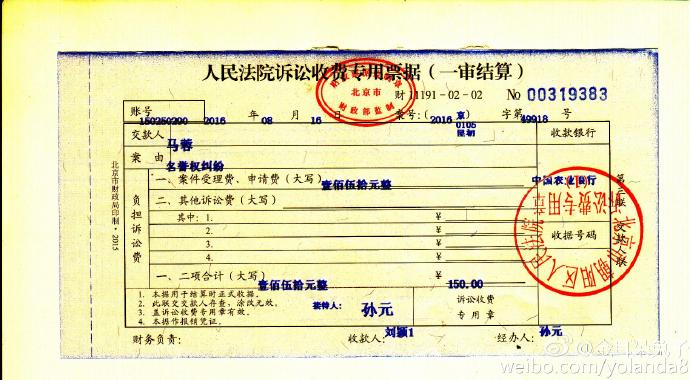 人民法院诉讼收费专用票据（一审结算）
北京市
财政部监制
财 11191-02-02
No 00319383
账号
150250200 2016 年 08 月 16 日 案号:(2016 京 0105 民初 字第 49918 号
交款人 马蓉 收款银行
案由 名誉权纠纷
一、案件受理费、申请费（大写） 壹佰伍拾元整 中国农业银行
二、其他诉讼费（大写） ¥
其中: 1. ¥
2. ¥
3. ¥
4. ¥
负担诉讼费
收据号码
一、二项合计（大写） 壹佰伍拾元整 150.00
1. 本据用于结算时正式收据。
2. 此联交交款人存查，涂改无效。
3. 盖诉讼收费专用章有效。
4. 本据作报销凭证。
接待人: 孙元
诉讼收费
专用章
财务负责: 收款人: 刘颖1 经办人: 孙元
北京市财政局印制·2015
北京市朝阳区人民法院
诉讼收费专用章
weibo.com/yolanda8